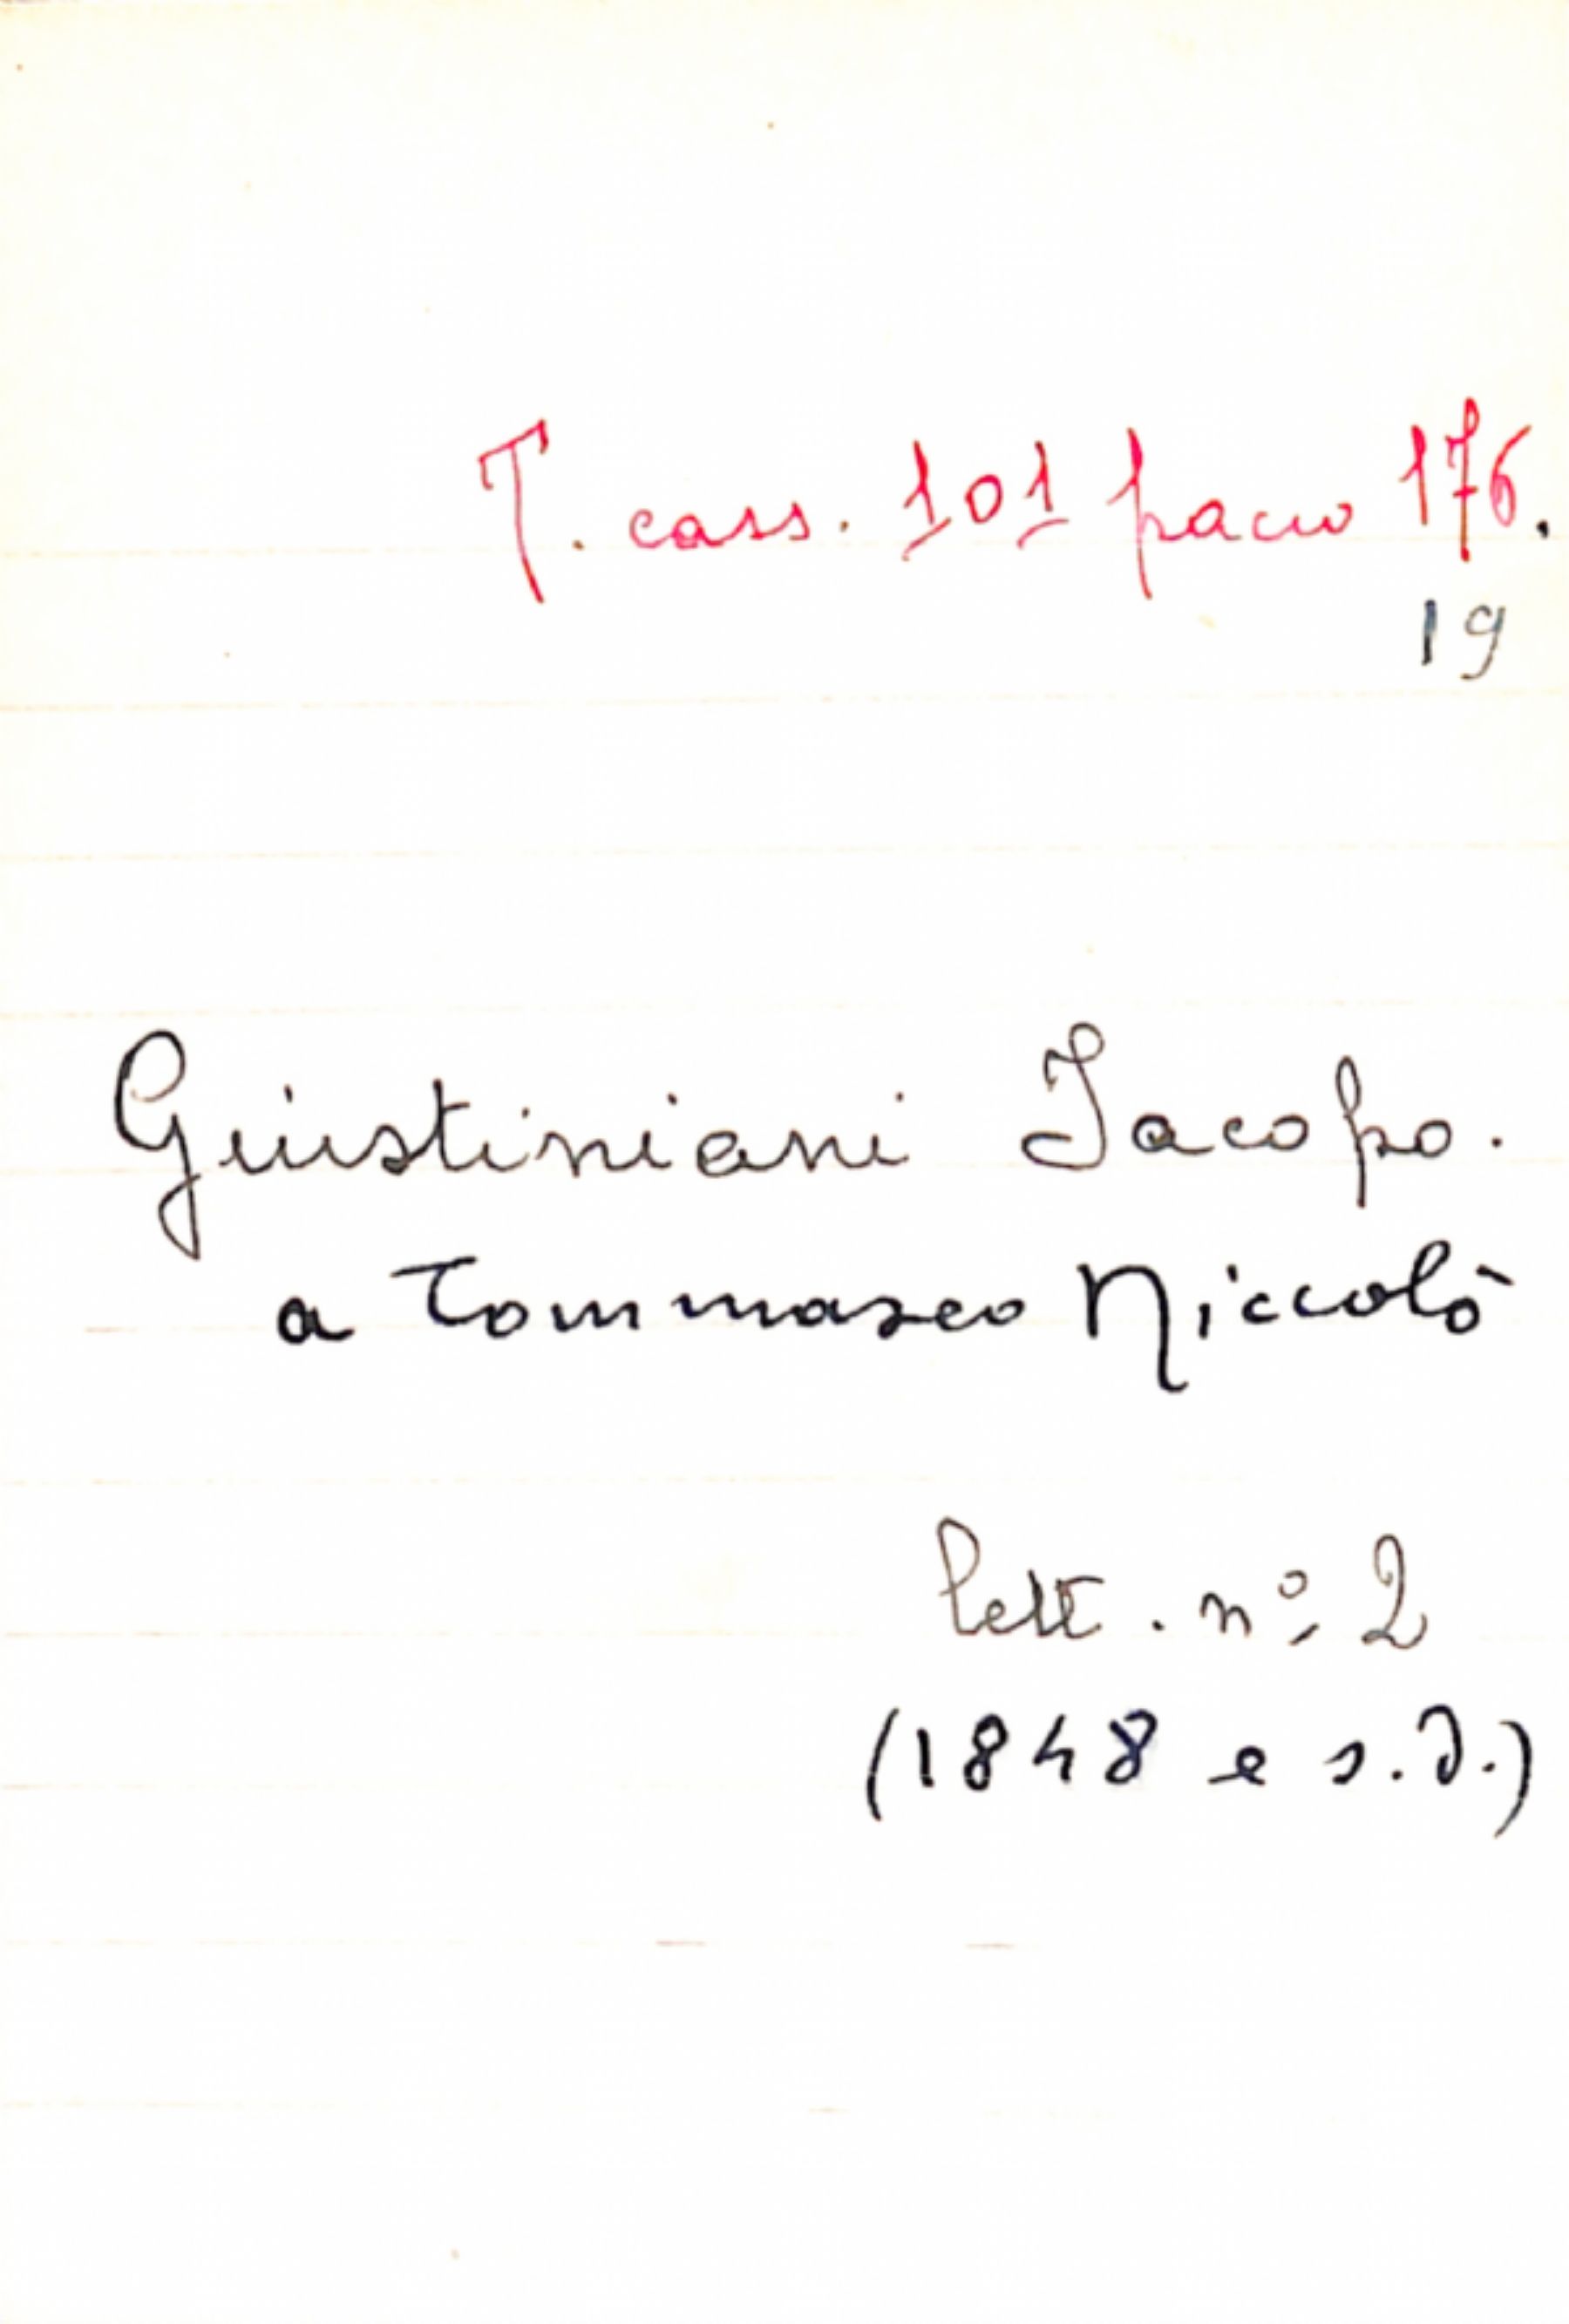 T. cass. 101 pacco 176.
19
Giustiniani Jacopo.
a Tommaseo Niccolò
lett. nº 2
(1848 e s.d.)